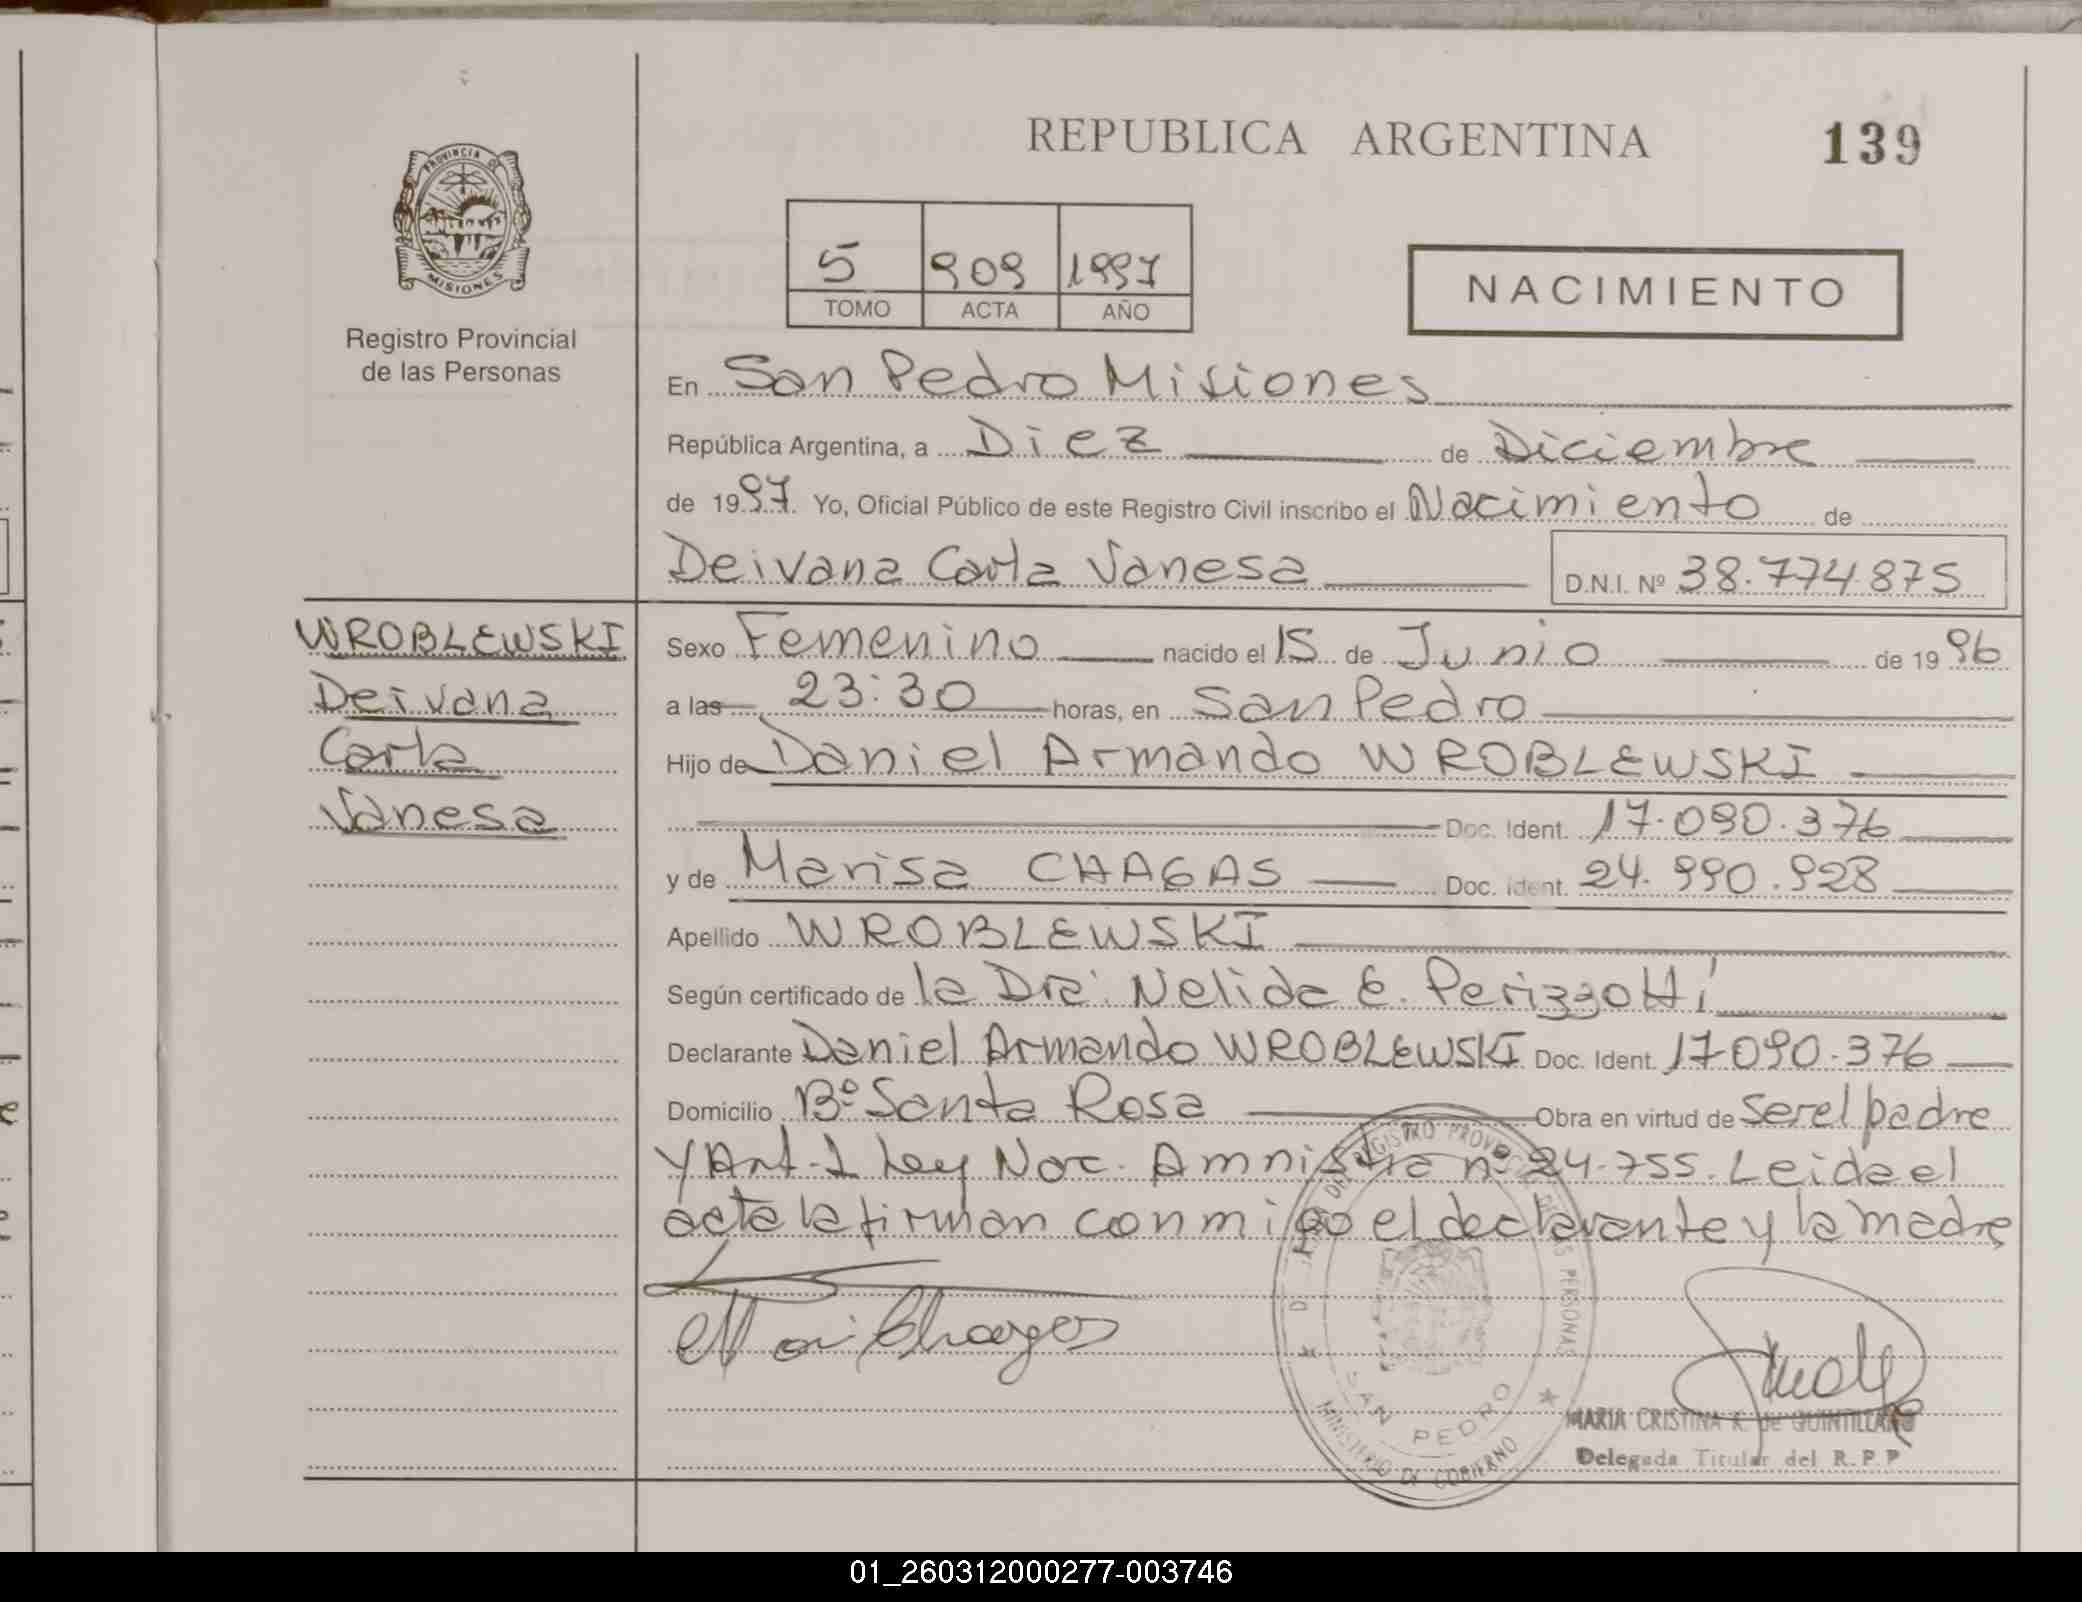 REPUBLICA ARGENTINA
139
PROVINCIA DE
MISIONES
Registro Provincial
de las Personas
5 909 1997
TOMO ACTA AÑO
NACIMIENTO
En San Pedro Misiones
República Argentina, a Diez de Diciembre
de 1997. Yo, Oficial Público de este Registro Civil inscribo el Nacimiento de
Deivana Carla Vanesa D.N.I. Nº 38.774.875
WROBLEWSKI
Deivana
Carla
Vanesa
Sexo Femenino nacido el 15 de Junio de 1996
a las 23:30 horas, en San Pedro
Hijo de Daniel Armando WROBLEWSKI
Doc. Ident. 17.090.376
y de Marisa CHAGAS Doc. Ident. 24.990.928
Apellido WROBLEWSKI
Según certificado de la Dra. Nelida E. Perizzotti
Declarante Daniel Armando WROBLEWSKI Doc. Ident. 17090.376
Domicilio Bº Santa Rosa Obra en virtud de ser el padre
y Art. 1 Ley Nac. Amnistia nº 24.755. Leida el
acta la firman conmigo el declarante y la madre
REGISTRO PROVINCIAL DE LAS PERSONAS
SAN PEDRO
MINISTERIO DE GOBIERNO
MARIA CRISTINA K. de QUINTILLANO
Delegada Titular del R.P.P
01_260312000277-003746